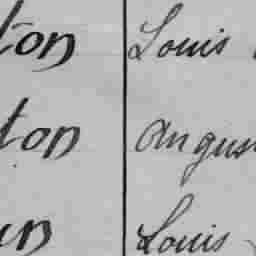 ton Louis
ton Angus
un Louis